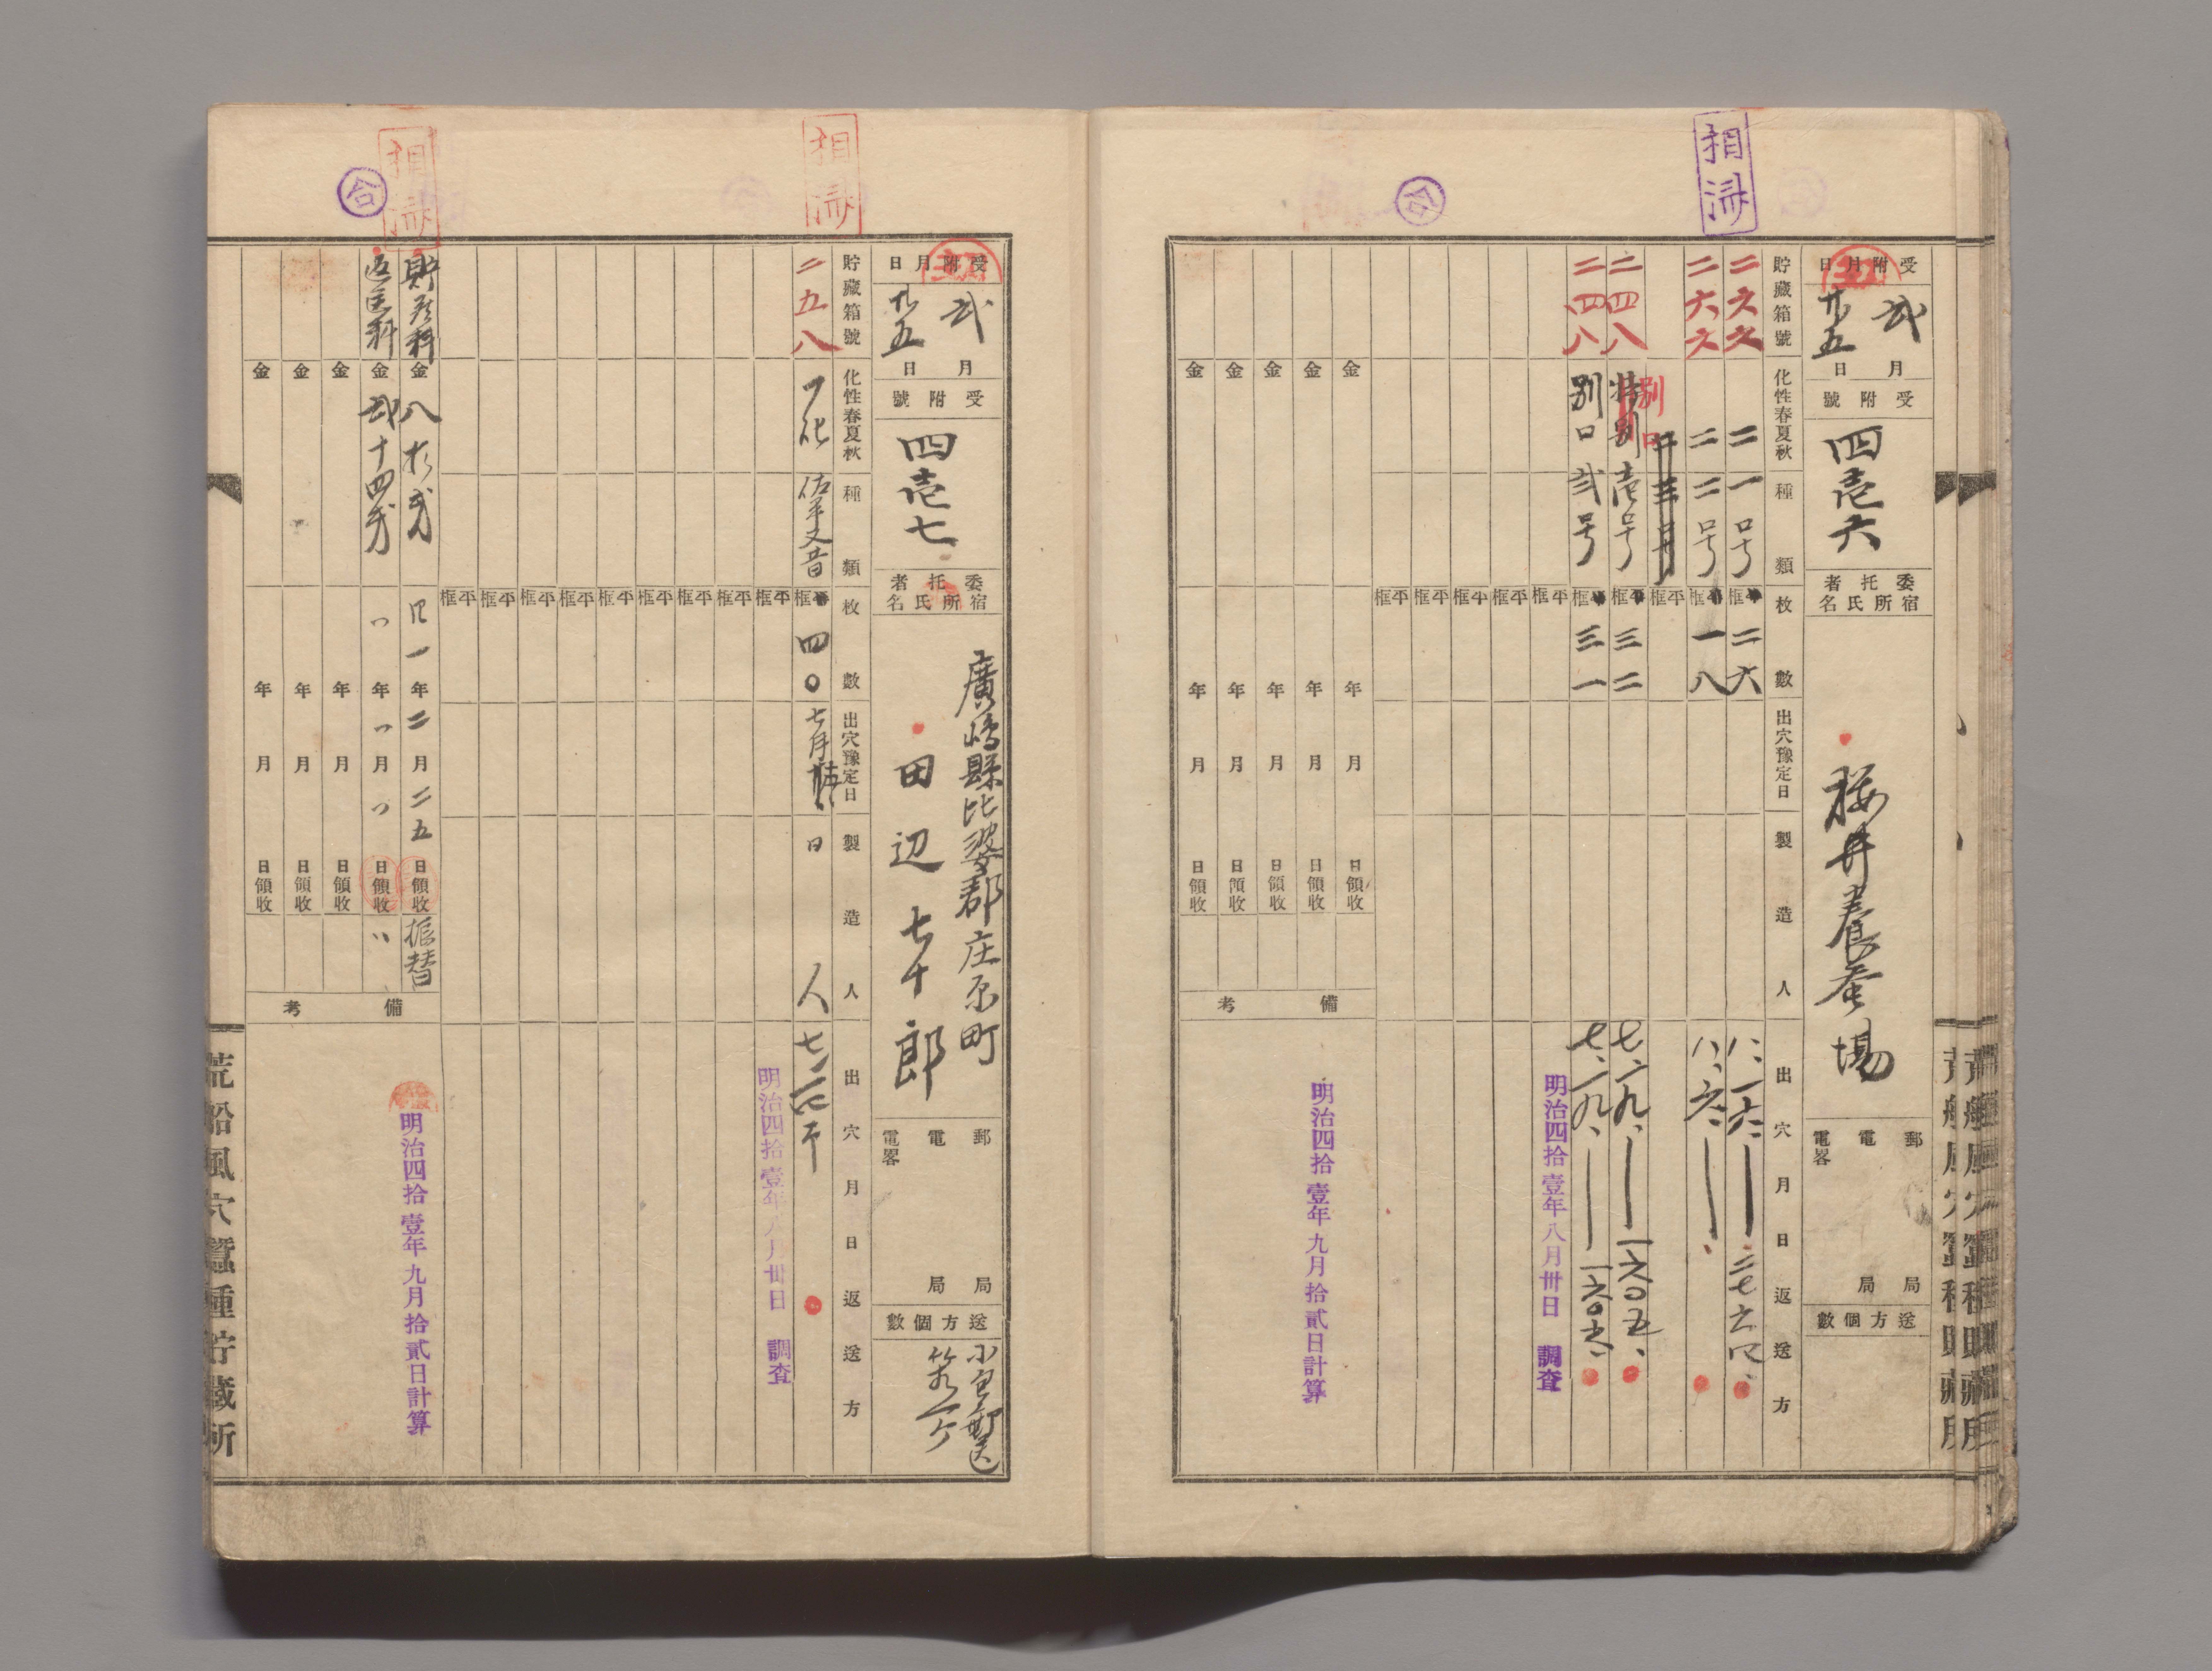 相済
合
受附月日
弐月
廿五日
受附號
四壱六
委托者
宿所氏名
桜井養蚕場
郵局
電局
電畧
送方個數
貯藏箱號
化性春夏秋
種類
枚數
出穴豫定日
製造人
出穴月日返送方
二六六
二一号
平框
二六
八、一六、
二六六
二二号
平框
一八
八、六、
平框
別口
二四八
特別壱号
平框
三二
七、一九、
一六〇五、
二四八
別口弐号
平框
三一
七、一九、
一六〇六、
平框
平框
平框
平框
平框
明治四拾壹年八月卅日 調査
金 年 月 日領收
金 年 月 日領收
金 年 月 日領收
金 年 月 日領收
金 年 月 日領收
備考
明治四拾壹年九月拾貳日計算
相済
相済
合
受附月日
弐月
廿五日
受附號
四壱七
委托者
宿所氏名
廣嶋縣比婆郡庄原町
田辺七十郎
郵局
電局
電畧
送方個數
小包郵送
貯藏箱號
化性春夏秋
種類
枚數
出穴豫定日
製造人
出穴月日返送方
二五八
又昔
平框
四〇
七月
日
人
平框
平框
平框
平框
平框
平框
平框
平框
平框
明治四拾壹年八月卅日 調査
貯蔵料 金八拾弐 四一年二月二五日領收 振替
返送料 金弐十四 〃年〃月〃日領收 〃
金 年 月 日領收
金 年 月 日領收
金 年 月 日領收
備考
明治四拾壹年九月拾貳日計算
荒船風穴蠶種貯藏所